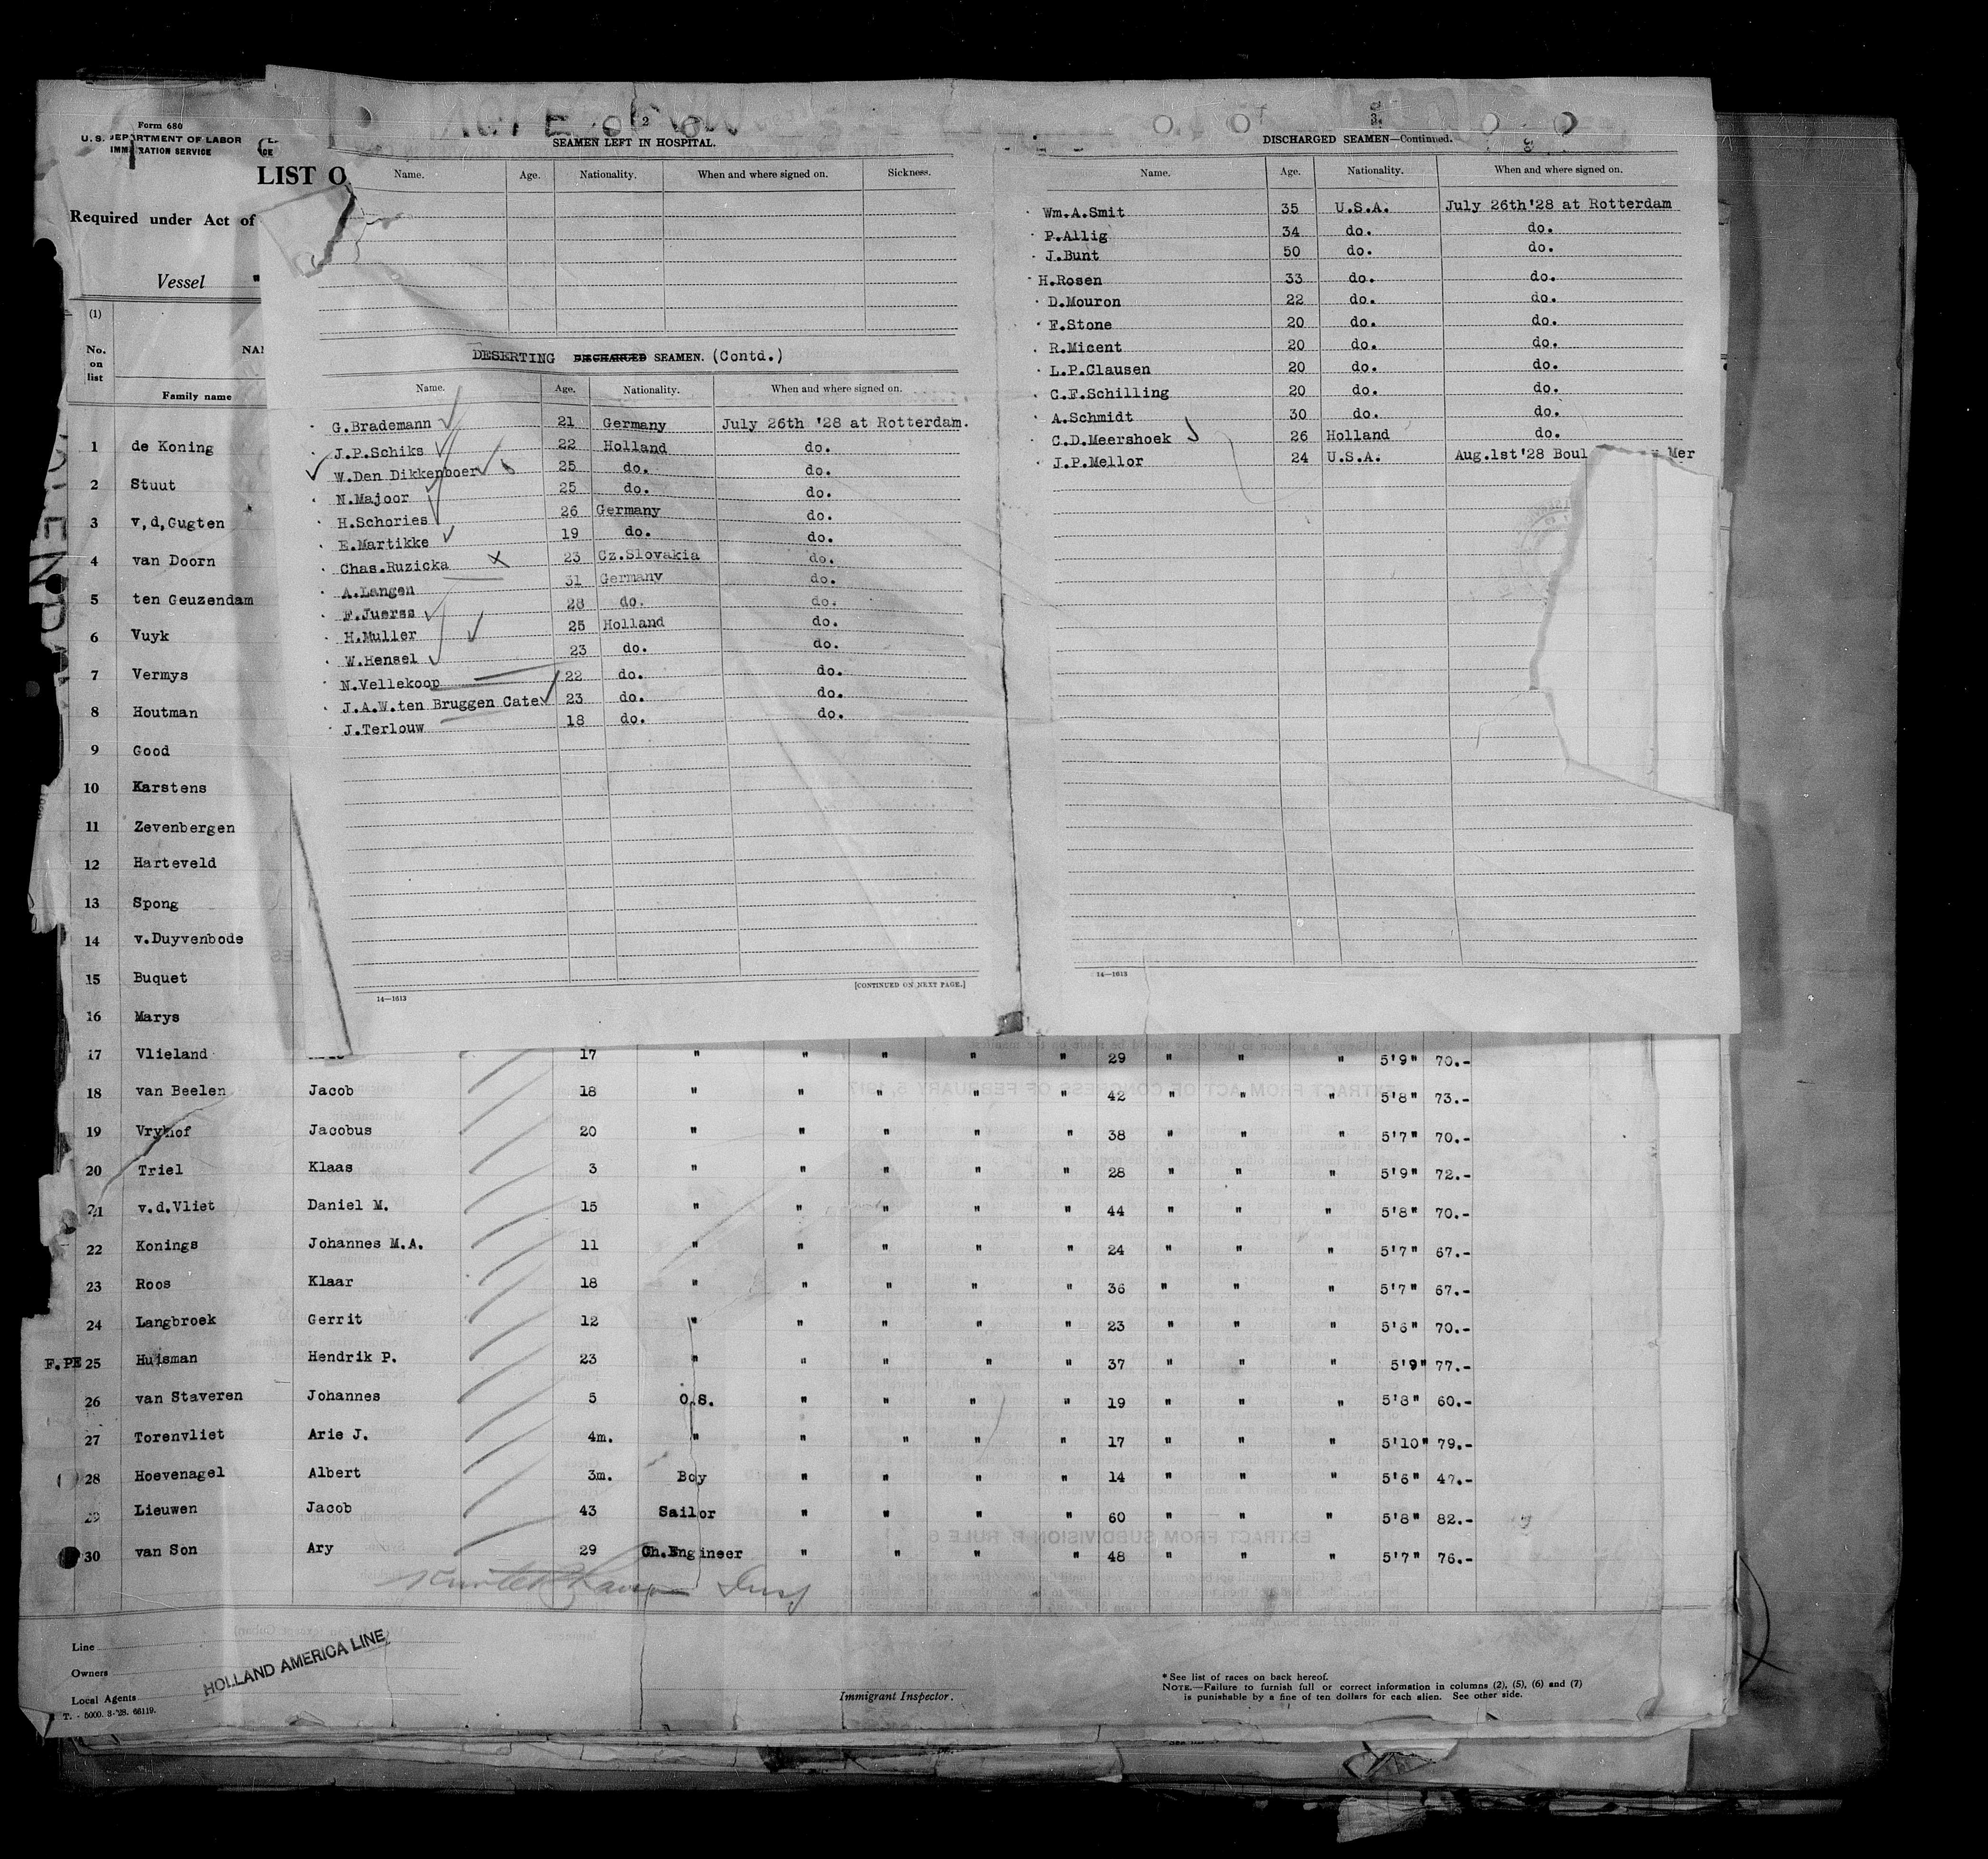 Form 680
U. S. DEPARTMENT OF LABOR
IMMIGRATION SERVICE
LIST O
Required under Act of
Vessel "
(1)
No. on list
NA
Family name
1 de Koning
2 Stuut
3 v,d,Gugten
4 van Doorn
5 ten Geuzendam
6 Vuyk
7 Vermys
8 Houtman
9 Good
10 Karstens
11 Zevenbergen
12 Harteveld
13 Spong
14 v.Duyvenbode
15 Buquet
16 Marys
2
SEAMEN LEFT IN HOSPITAL.
Name. Age. Nationality. When and where signed on. Sickness.
DESERTING DISCHARGED SEAMEN. (Contd.)
Name. Age. Nationality. When and where signed on.
G.Brademann 21 Germany July 26th '28 at Rotterdam.
J.P.Schiks 22 Holland do.
W.Den Dikkenboer 25 do. do.
N.Majoor 25 do. do.
H.Schories 26 Germany do.
E.Martikke 19 do. do.
Chas.Ruzicka 23 Cz.Slovakia do.
A.Langen 31 Germany do.
F.Juerss 28 do. do.
H.Muller 25 Holland do.
W.Hensel 23 do. do.
N.Vellekoop 22 do. do.
J.A.W.ten Bruggen Cate 23 do. do.
J.Terlouw 18 do. do.
14—1613 [CONTINUED ON NEXT PAGE.]
3
DISCHARGED SEAMEN—Continued.
Name. Age. Nationality. When and where signed on.
Wm.A.Smit 35 U.S.A. July 26th'28 at Rotterdam
P.Allig 34 do. do.
J.Bunt 50 do. do.
H.Rosen 33 do. do.
D.Mouron 22 do. do.
F.Stone 20 do. do.
R.Micent 20 do. do.
L.P.Clausen 20 do. do.
C.F.Schilling 20 do. do.
A.Schmidt 30 do. do.
C.D.Meershoek 26 Holland do.
J.P.Mellor 24 U.S.A. Aug.1st'28 Boul Mer
14—1613
17 Vlieland 17 " " " " " 29 " " " 5'9" 70.-
18 van Beelen Jacob 18 " " " " " 42 " " " 5'8" 73.-
19 Vryhof Jacobus 20 " " " " " 38 " " " 5'7" 70.-
20 Triel Klaas 3 " " " " " 28 " " " 5'9" 72.-
21 v.d.Vliet Daniel M. 15 " " " " " 44 " " " 5'8" 70.-
22 Konings Johannes M.A. 11 " " " " " 24 " " " 5'7" 67.-
23 Roos Klaar 18 " " " " " 36 " " " 5'7" 67.-
24 Langbroek Gerrit 12 " " " " " 23 " " " 5'6" 70.-
F.PE 25 Huisman Hendrik P. 23 " " " " " 37 " " " 5'9" 77.-
26 van Staveren Johannes 5 O.S. " " " " 19 " " " 5'8" 60.-
27 Torenvliet Arie J. 4m. " " " " " 17 " " " 5'10" 79.-
28 Hoevenagel Albert 3m. Boy " " " " 14 " " " 5'6" 47.-
29 Lieuwen Jacob 43 Sailor " " " " 60 " " " 5'8" 82.-
30 van Son Ary 29 Ch.Engineer " " " " 48 " " " 5'7" 76.-
Line
Owners
HOLLAND AMERICA LINE
Local Agents
T. - 5000. 3-'28. 66119.
Immigrant Inspector.
* See list of races on back hereof.
NOTE.—Failure to furnish full or correct information in columns (2), (5), (6) and (7)
is punishable by a fine of ten dollars for each alien. See other side.